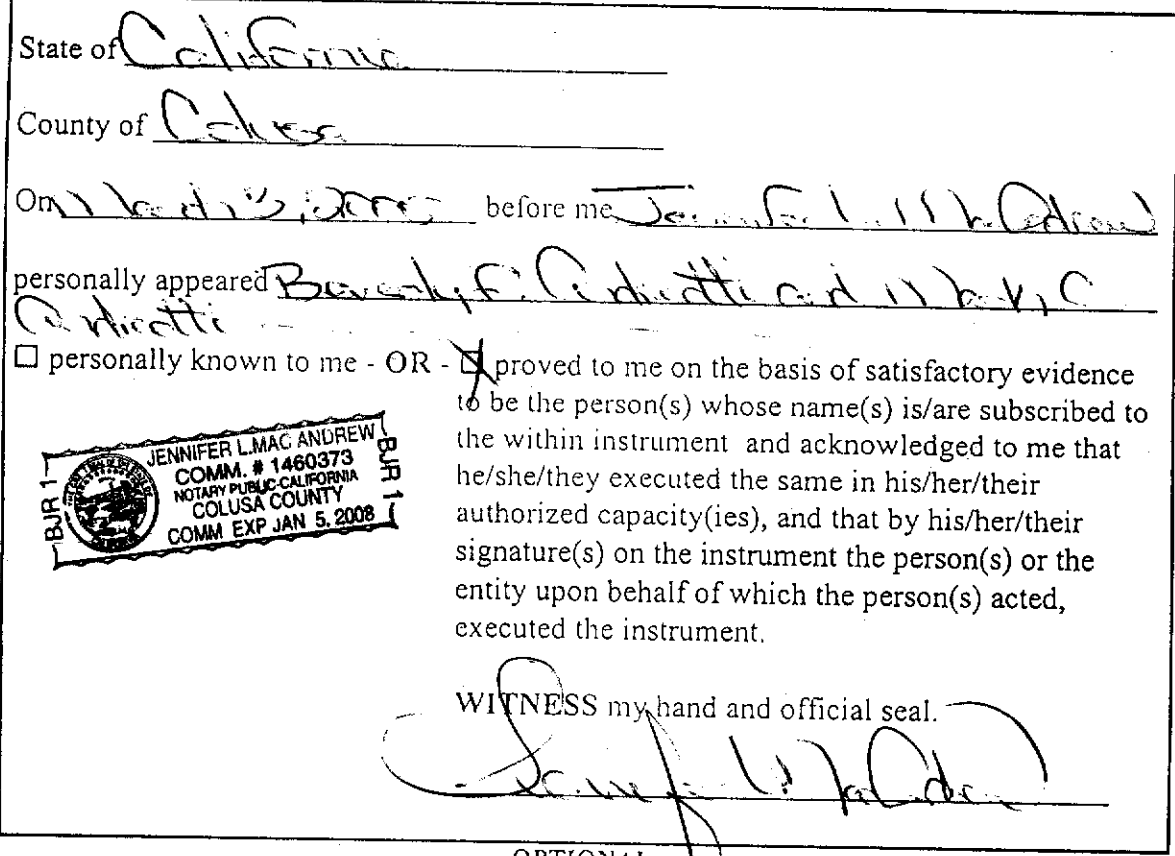 State of California
County of Colusa
On before me Jennifer L. MacAndrew
personally appeared Beverly F. and C
☐ personally known to me - OR - ☒ proved to me on the basis of satisfactory evidence
to be the person(s) whose name(s) is/are subscribed to
the within instrument and acknowledged to me that
he/she/they executed the same in his/her/their
authorized capacity(ies), and that by his/her/their
signature(s) on the instrument the person(s) or the
entity upon behalf of which the person(s) acted,
executed the instrument.
BJR 1
JENNIFER L.MAC ANDREW
COMM. # 1460373
NOTARY PUBLIC-CALIFORNIA
COLUSA COUNTY
COMM EXP JAN 5, 2008
BJR 1
WITNESS my hand and official seal.
OPTIONAL